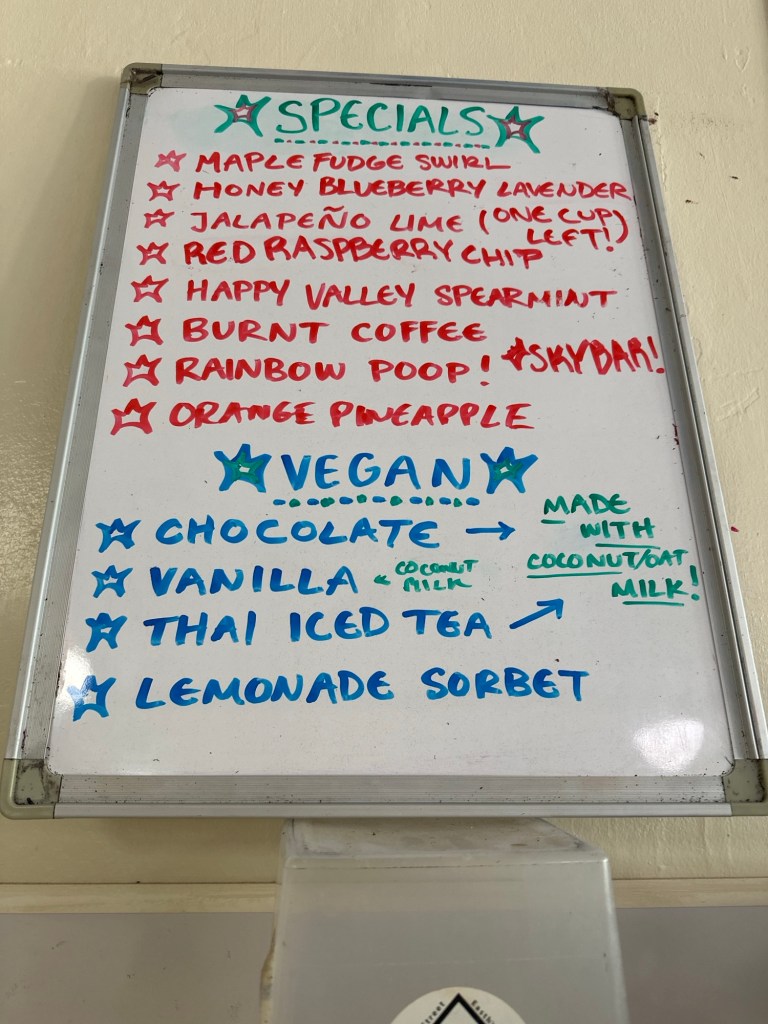 SPECIALS
MAPLE FUDGE SWIRL
HONEY BLUEBERRY LAVENDER
JALAPEÑO LIME (ONE CUP LEFT!)
RED RASPBERRY CHIP
HAPPY VALLEY SPEARMINT
BURNT COFFEE
RAINBOW POOP!
SKYBAR!
ORANGE PINEAPPLE
VEGAN
CHOCOLATE →
MADE
WITH
COCONUT/OAT
MILK!
VANILLA
COCONUT
MILK
THAI ICED TEA
LEMONADE SORBET
Street